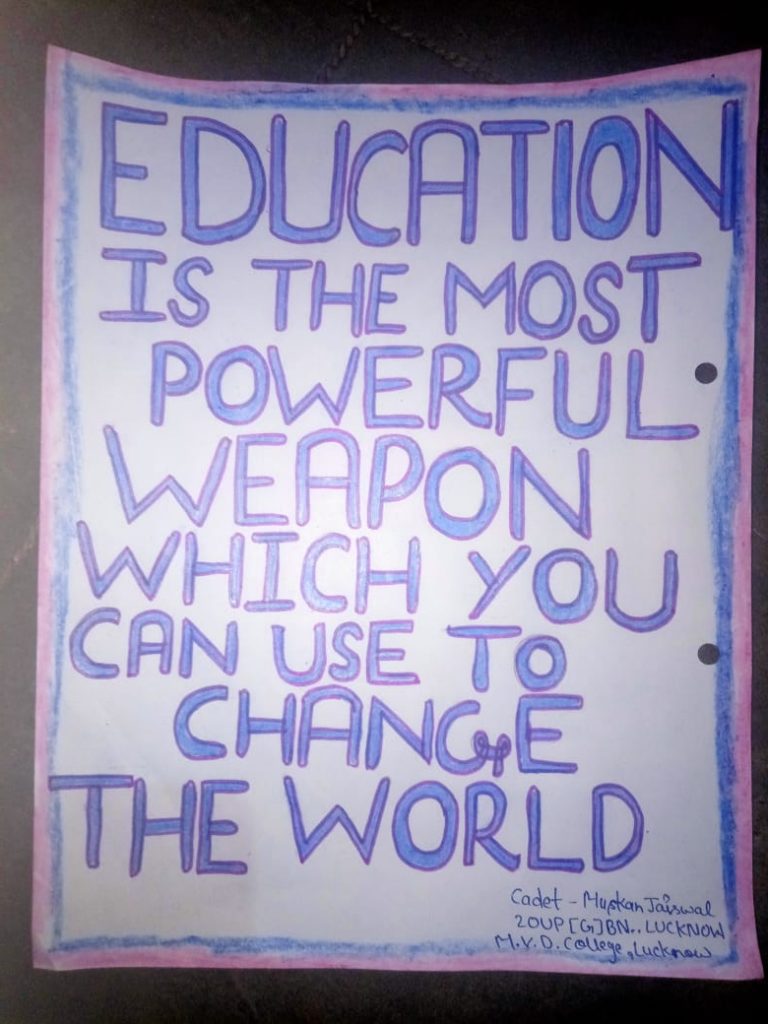 EDUCATION
IS THE MOST
POWERFUL
WEAPON
WHICH YOU
CAN USE TO
CHANGE
THE WORLD
Cadet - Muskan Jaiswal
20UP [G]BN., LUCKNOW
M.V.D. College, Lucknow